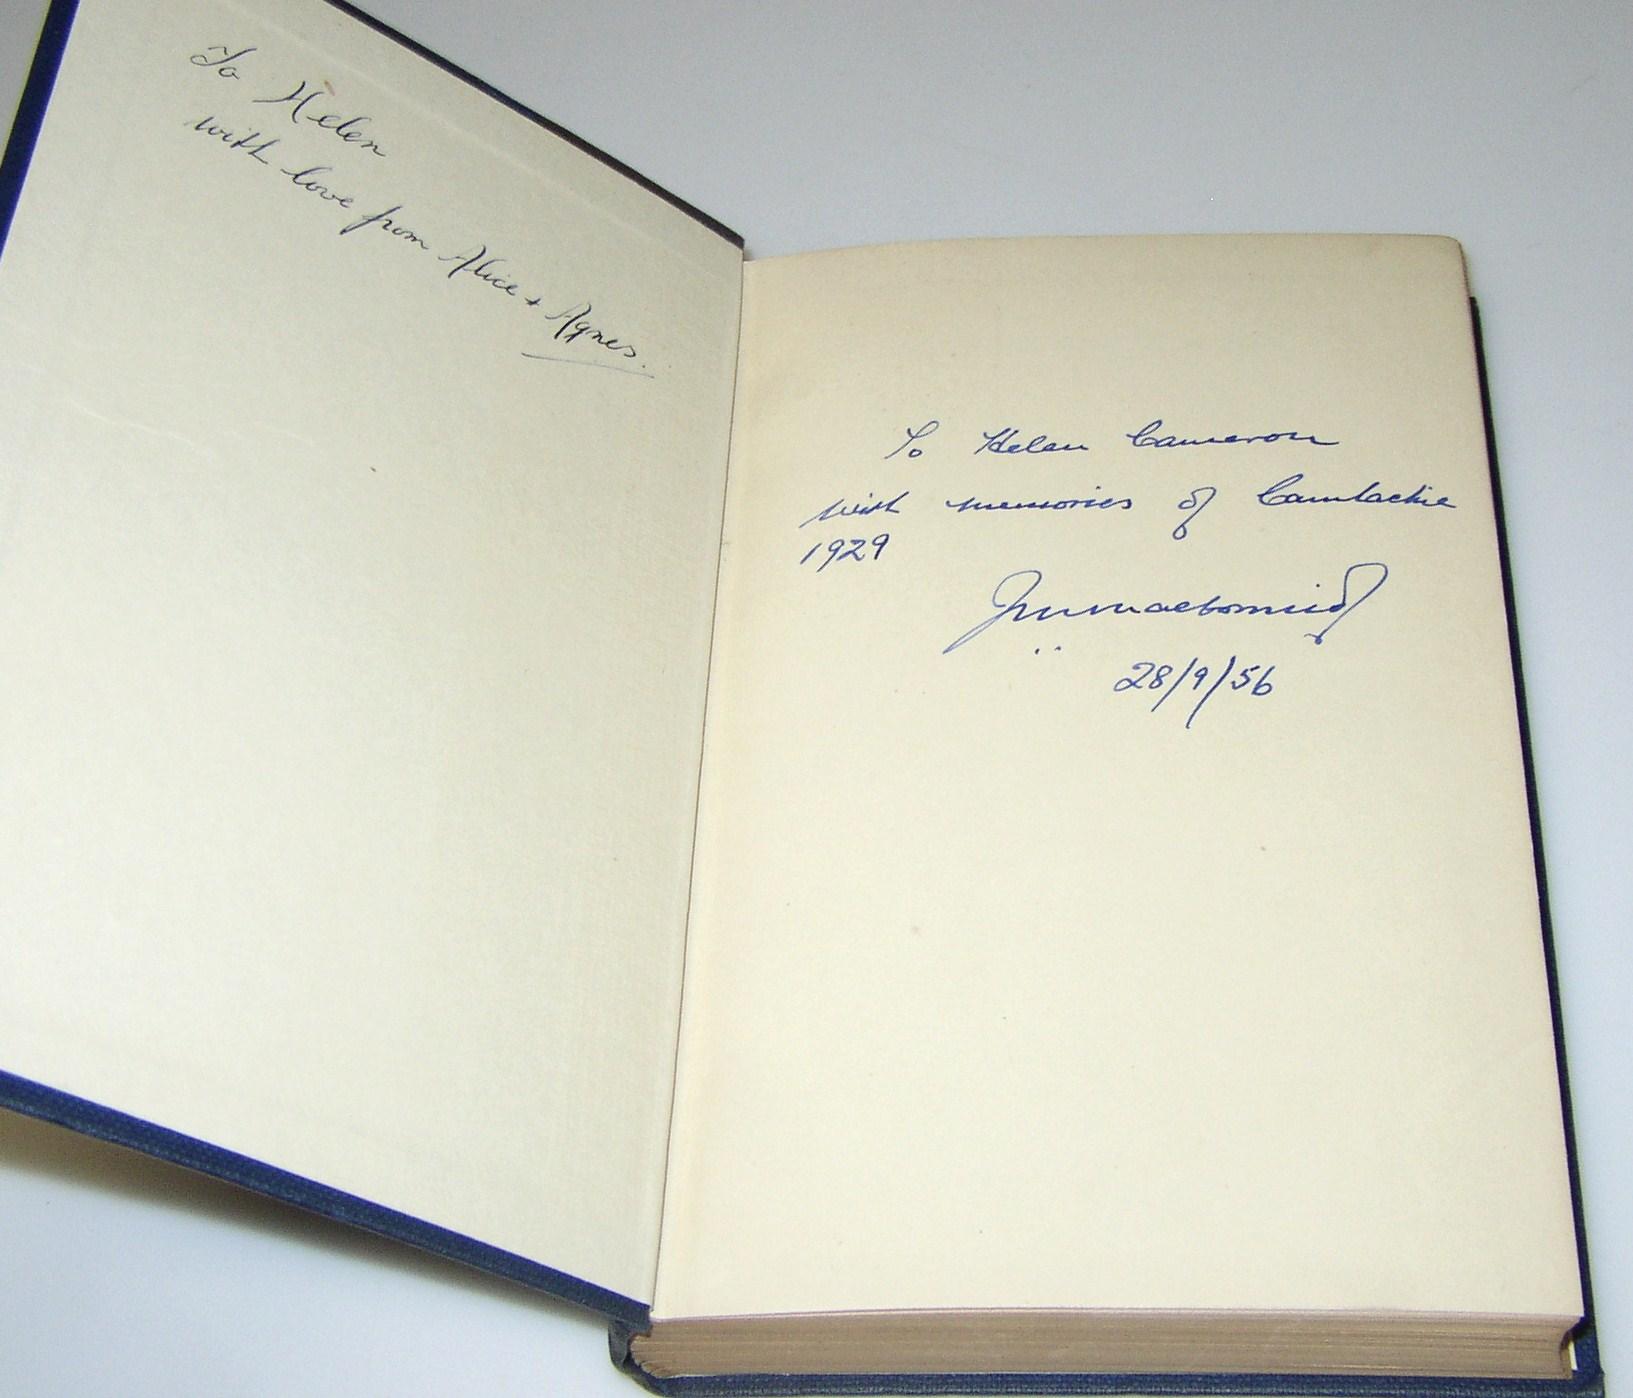 To Helen
with love from Alice + Agnes.
To Helen Cameron
with memories of Camlachie
1929
J M MacCormick
28/9/56